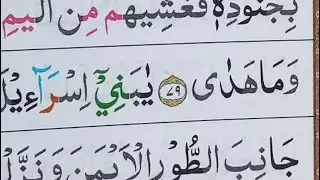 بِجُنُوْدِهٖ فَغَشِيَهُمْ مِّنَ الْيَمِّ
وَمَا هَدٰى ﴿۷۹﴾ يٰبَنِيْٓ اِسْرَآءِيْلَ
جَانِبَ الطُّوْرِ الْاَيْمَنَ وَ نَزَّلْ